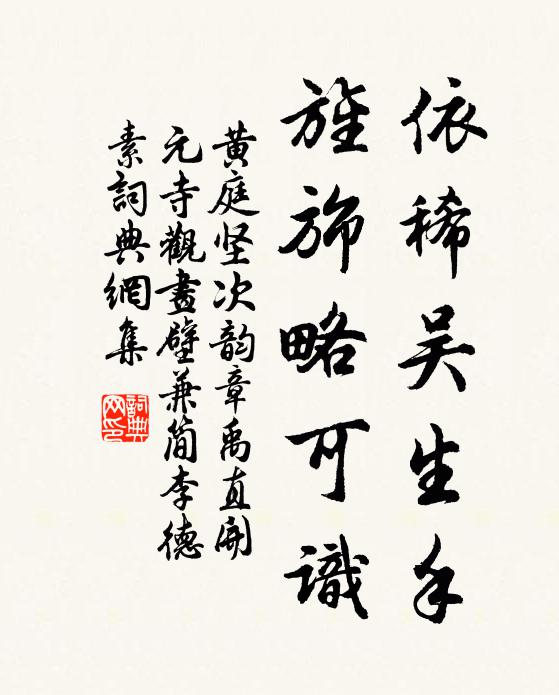 依稀吴生手
旌旆略可識
黄庭坚次韵章禹直開
元寺觀畫壁兼简李德
素詞典網集
詞典网印